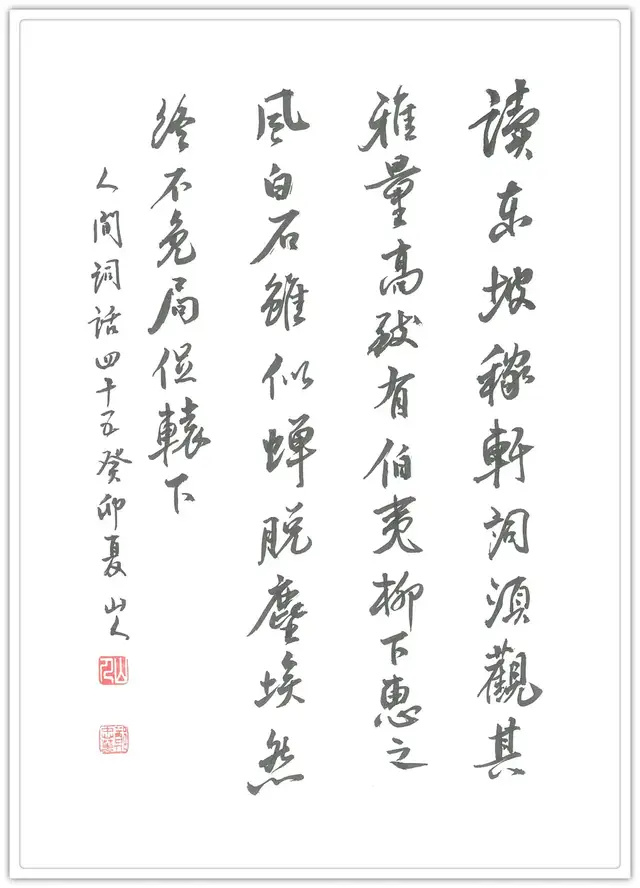 讀东坡稼軒詞須觀其
雅量高致有伯夷柳下惠之
風白石雖似蟬脱塵埃然
终不免局促轅下
人间词话四十五癸卯夏山人